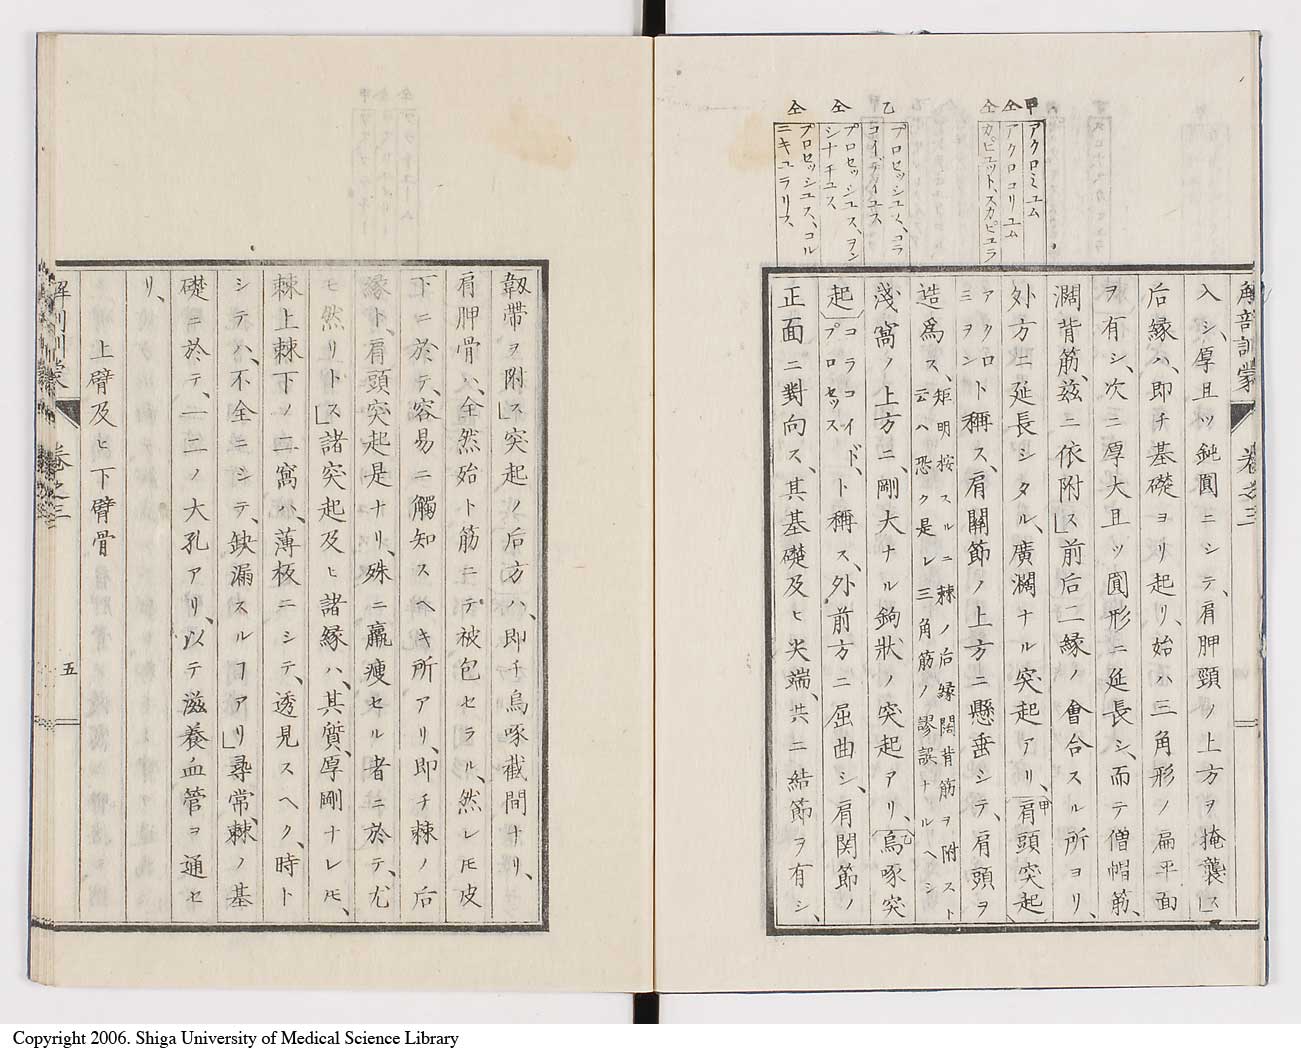 解剖訓蒙 卷之三
甲
アクロミユム
仝
アクロコリユム
仝
カピユット、スカピユラ
乙
プロセッシユス、コラ
コイデイユス
仝
プロセッシユス、ヲン
シナチユス
仝
プロセッシユス、コル
ニキユラリス
入シ、厚且ツ鈍圓ニシテ、肩胛頸ノ上方ヲ掩襲ス」
后緣ハ、即チ基礎ヨリ起リ、始ハ三角形ノ扁平面
ヲ有シ、次ニ厚大且ツ圓形ニ延長シ、而テ僧帽筋、
濶背筋、玆ニ依附ス」前后二緣ノ會合スル所ヨリ、
外方ニ延長シタル、廣濶ナル突起アリ、甲肩頭突起
アクロ
ミヲン
ト稱ス、肩關節ノ上方ニ懸垂シテ、肩頭ヲ
造爲ス、
矩明按スルニ棘ノ后緣闊背筋ヲ附スト
云ヘ恐クハ是レ三角筋ノ謬誤ナルヘシ
淺窩ノ上方ニ、剛大ナル鉤狀ノ突起アリ、乙烏啄突
起
コラコイド、
プロセッス
ト稱ス、外前方ニ屈曲シ、肩関節ノ
正面ニ對向ス、其基礎及ヒ尖端、共ニ結節ヲ有シ、
韌帶ヲ附ス」突起ノ后方ハ、即チ烏啄截間ナリ、
肩胛骨ハ、全然始ト筋ニテ被包セラル、然レ𪜈皮
下ニ於テ、容易ニ觸知スヘキ所アリ、即チ棘ノ后
緣ト、肩頭突起是ナリ、殊ニ羸瘦セル者ニ於テ、尤
モ然リトス」諸突起及ヒ諸緣ハ、其質、厚剛ナレ𪜈、
棘上棘下ノ二窩ハ、薄板ニシテ、透見スヘク、時ト
シテハ、不全ニシテ、缺漏スルヿアリ」尋常、棘ノ基
礎ニ於テ、一二ノ大孔アリ、以テ滋養血管ヲ通セ
リ、
上臂及ヒ下臂骨
解剖訓蒙 卷之三
五
Copyright 2006. Shiga University of Medical Science Library